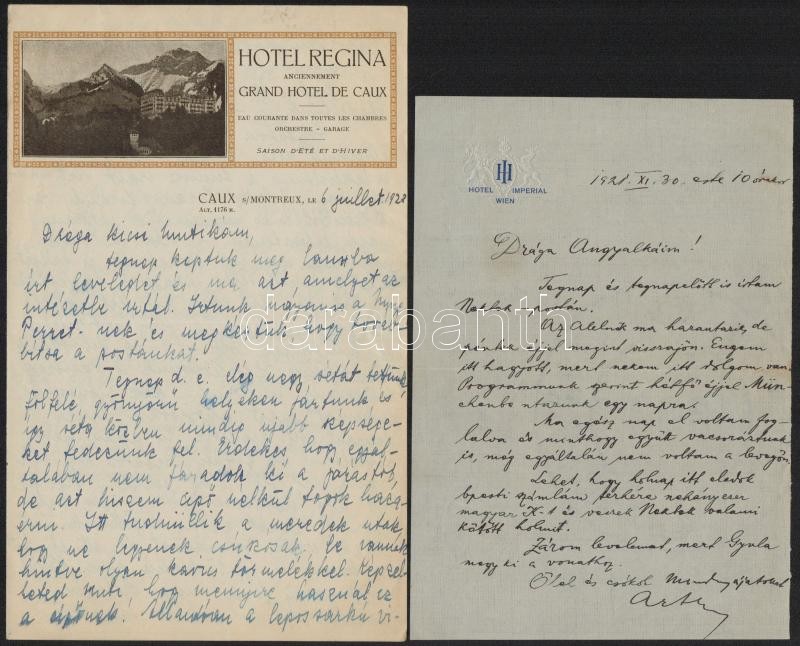 HOTEL REGINA
ANCIENNEMENT
GRAND HOTEL DE CAUX
EAU COURANTE DANS TOUTES LES CHAMBRES
ORCHESTRE - GARAGE
SAISON D'ÉTÉ ET D'HIVER
CAUX s/MONTREUX, LE 6 juillet 1928
ALT. 1176 M.
Drága kicsi Mutikám,
tegnap kaptuk meg
írt leveledet és ma azt, amelyet az
intézetbe írtál. Írtunk a
Perret-nek és megkértük hogy továb-
bítsa a postánkat.
Tegnap d. e. elég nagy sétát tettünk
fölfelé, gyönyörű helyeken jártunk és
így séta közben mindig ujabb szépsége-
ket fedezünk fel. Érdekes hogy egyál-
talában nem fáradok ki a járástól,
de azt hiszem cipő nélkül fogok haza-
érni. Itt a meredek utak
hogy ne legyenek csúszósak be vannak
hintve olyan kavics törmelékkel. Képzel-
heted Muti, hogy mennyire használ ez
a cipőnek! Állandóan a vi-
darabanth
HOTEL IMPERIAL
WIEN
1921. XI. 30. este 10 órakor
Drága Angyalkáim!
Tegnap és tegnapelőtt is írtam
Nektek
Az Alelnök ma hazautazik, de
péntek éjjel megint visszajön. Engem
itt hagyott, mert nekem itt dolgom van.
Programmunk szerint hétfő éjjel Mün-
chenbe utazunk egy napra.
Ma egész nap el voltam fog-
lalva és minthogy együtt vacsoráztunk
is, még egyáltalán nem voltam a levegőn.
Lehet, hogy holnap itt eladok
bpesti számlám terhére néhányezer
magyar K-t és veszek Nektek valami
kötött holmit.
Zárom levelemet, mert Gyula
megy ki a vonathoz.
Ölel és csókol Mindnyájatokat